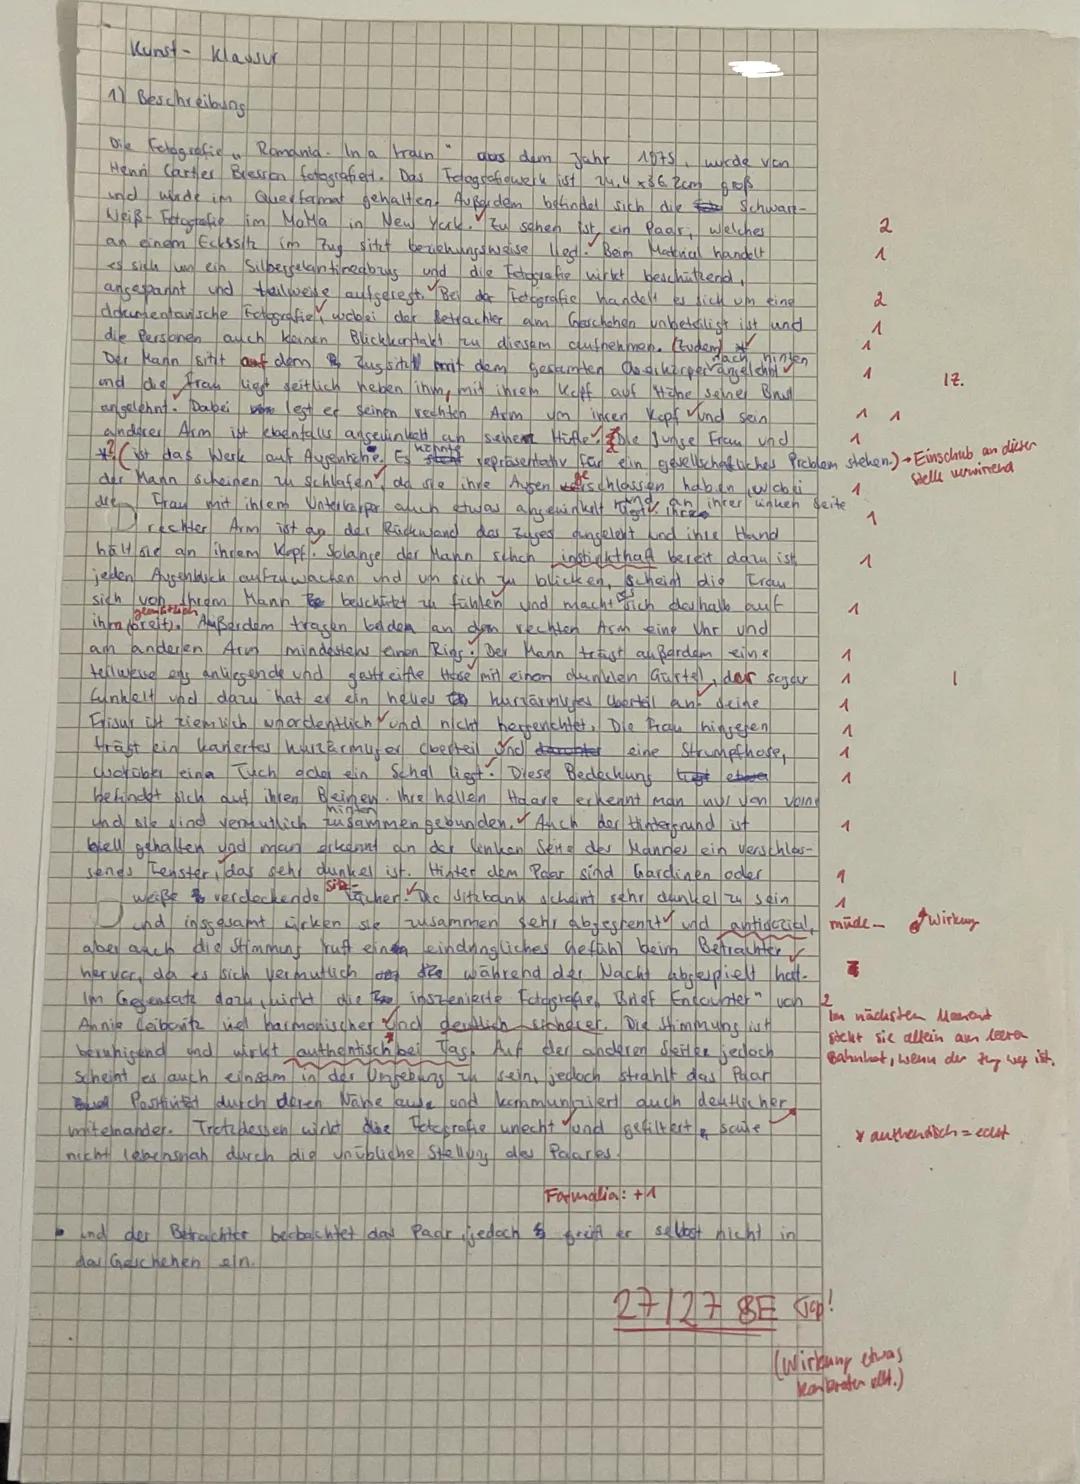 Kunst- Klausur
1) Beschreibung
Die Fotografie „Romania. In a train" aus dem Jahr 1975, wurde von
Henri Cartier Bresson fotografiert. Das Fotografiewerk ist 24,4 x 36,2cm groß
und wurde im Querformat gehalten. Außerdem befindet sich die Schwarz-
Weiß- Fotografie im MoMa in New York. Zu sehen ist ein Paar, welches
2
an einem Ecksitz im Zug sitzt beziehungsweise liegt. Beim Material handelt
1
es sich um ein und die Fotografie wirkt beschützend,
angespannt und teilweise aufgeregt. Bei der Fotografie handelt es sich um eine
2
dokumentarische Fotografie, wobei der Betrachter am Geschehen unbeteiligt ist und
1
die Personen auch keinen Blickkontakt zu diesem aufnehmen. (Zudem *
1
Der Mann sitzt auf dem Zugsitz mit dem gesamten nach hinten angelehnt
1
und die Frau liegt seitlich neben ihm, mit ihrem Kopf auf Höhe seiner Brust
17.
angelehnt. Dabei legt er seinen rechten Arm um ihren Kopf und sein
1 1
anderer Arm ist ebenfalls angewinkelt an seiner Hüfte. Die junge Frau und
1
*? (ist das Werk auf Augenhöhe. Es könnte repräsentativ für ein gesellschaftliches Problem stehen.) → Einschub an dieser Stelle verwirrend
der Mann scheinen zu schlafen, da sie ihre Augen geschlossen haben, wobei
1
die Frau mit ihrem Unterkörper auch etwas angewinkelt liegt und an ihrer linken Seite
1
rechter Arm ist an der Rückwand des Zuges angelehnt und ihre Hand
hält sie an ihrem Kopf. Solange der Mann schon instinkthaft bereit dazu ist
1
jeden Augenblick aufzuwachen und um sich zu blicken, scheint die Frau
sich von ihrem Mann beschützt zu fühlen und macht es sich deshalb auf
1
ihm gemütlich (breit). Außerdem tragen beiden an dem rechten Arm eine Uhr und
am anderen Arm mindestens einen Ring. Der Mann trägt außerdem eine
1
teilweise eng anliegende und gestreifte Hose mit einem dunklen Gürtel, der sogar
1
1
funkelt und dazu hat er ein helles kurzärmliges Oberteil an. Seine
1
Frisur ist ziemlich unordentlich und nicht hergerichtet. Die Frau hingegen
1
trägt ein kariertes kurzärmliges Oberteil und eine Strumpfhose,
1
worüber eine Tuch oder ein Schal liegt. Diese Bedeckung
1
befindet sich auf ihren Beinen. Ihre hellen Haare erkennt man nur von vorne
und sie sind vermutlich hinten zusammengebunden. Auch der Hintergrund ist
1
hell gehalten und man erkennt an der linken Seite des Mannes ein verschlos-
senes Fenster, das sehr dunkel ist. Hinter dem Paar sind Gardinen oder
1
weiße verdeckende Sitz-tücher. Die Sitzbank scheint sehr dunkel zu sein
1
und insgesamt wirken sie zusammen sehr abgegrenzt und antisozial,
müde Wirkung
aber auch die Stimmung ruft ein eindringliches Gefühl beim Betrachter
hervor, da es sich vermutlich während der Nacht abgespielt hat.
Im Gegensatz dazu, wirkt die inszenierte Fotografie „Brief Encounter" von
2
Annie Leibovitz viel harmonischer und deutlich sicherer. Die Stimmung ist
Im nächsten Moment steht sie allein am leeren Bahnhof, wenn der Zug weg ist.
beruhigend und wirkt authentisch bei Tag. Auf der anderen Seite jedoch
scheint es auch einsam in der Umgebung zu sein, jedoch strahlt das Paar
Positivität durch deren Nähe aus und kommuniziert auch deutlicher
miteinander. Trotzdessen wirkt die Fotografie unecht und gefiltert, sowie
* authentisch = echt
nicht lebensnah durch die unübliche Stellung des Paares.
Formalia: +1
• und der Betrachter beobachtet das Paar, jedoch greift er selbst nicht in
das Geschehen ein.
27/27 BE Top!
(Wirkung etwas)